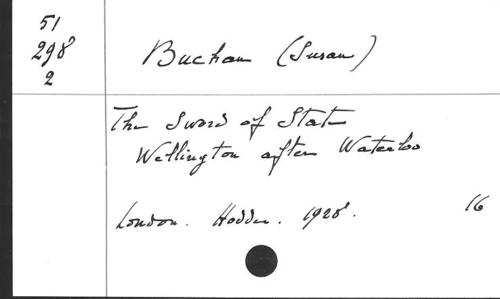 51
298
2
Buchan (Susan)
The Sword of State
Wellington after Waterloo
London. Hodder. 1928.
16